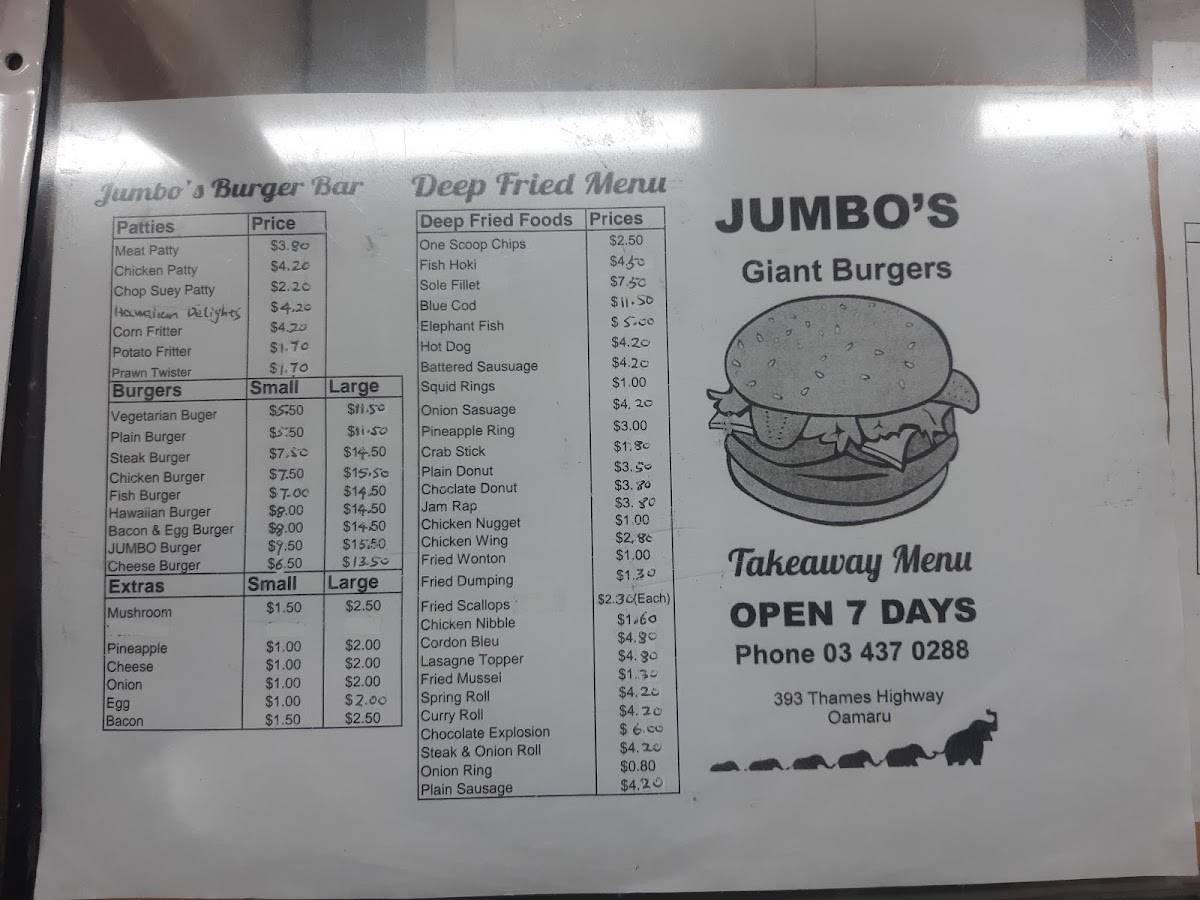 Jumbo's Burger Bar
Patties Price
Meat Patty $3.80
Chicken Patty $4.20
Chop Suey Patty $2.20
Hawaiian Delights $4.20
Corn Fritter $4.20
Potato Fritter $1.70
Prawn Twister $1.70
Burgers Small Large
Vegetarian Buger $5.50 $11.50
Plain Burger $5.50 $11.50
Steak Burger $7.50 $14.50
Chicken Burger $7.50 $15.50
Fish Burger $7.00 $14.50
Hawaiian Burger $8.00 $14.50
Bacon & Egg Burger $8.00 $14.50
JUMBO Burger $9.50 $15.50
Cheese Burger $6.50 $13.50
Extras Small Large
Mushroom $1.50 $2.50
Pineapple $1.00 $2.00
Cheese $1.00 $2.00
Onion $1.00 $2.00
Egg $1.00 $2.00
Bacon $1.50 $2.50
Deep Fried Menu
Deep Fried Foods Prices
One Scoop Chips $2.50
Fish Hoki $4.50
Sole Fillet $7.50
Blue Cod $11.50
Elephant Fish $5.00
Hot Dog $4.20
Battered Sausuage $4.20
Squid Rings $1.00
Onion Sasuage $4.20
Pineapple Ring $3.00
Crab Stick $1.80
Plain Donut $3.50
Choclate Donut $3.80
Jam Rap $3.80
Chicken Nugget $1.00
Chicken Wing $2.80
Fried Wonton $1.00
Fried Dumping $1.30
Fried Scallops $2.30(Each)
Chicken Nibble $1.60
Cordon Bleu $4.80
Lasagne Topper $4.80
Fried Mussel $1.30
Spring Roll $4.20
Curry Roll $4.20
Chocolate Explosion $6.00
Steak & Onion Roll $4.20
Onion Ring $0.80
Plain Sausage $4.20
JUMBO'S
Giant Burgers
Takeaway Menu
OPEN 7 DAYS
Phone 03 437 0288
393 Thames Highway
Oamaru